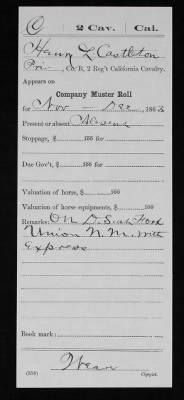 C 2 Cav. Cal.
Henry L Castleton
Pri , Co. B, 2 Reg't California Cavalry.
Appears on
Company Muster Roll
for Nov – Dec , 1863
Present or absent Absent
Stoppage, $ 100 for
Due Gov't, $ 100 for
Valuation of horse, $ 100
Valuation of horse equipments, $ 100
Remarks: On D.S. at Fort
Union N.M. with
Express
Book mark:
(358) Copyist.